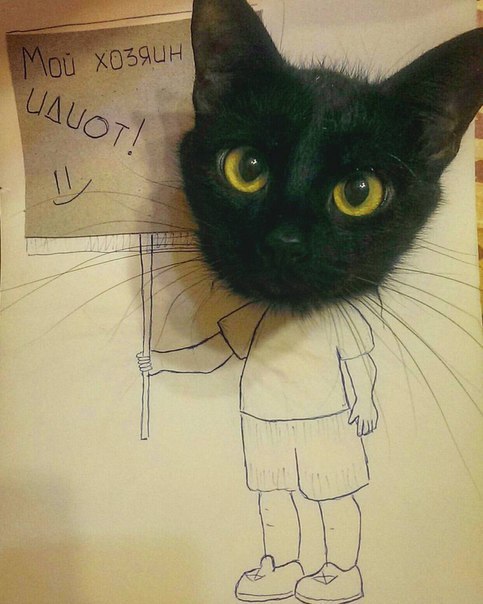 Мой хозяин
идиот!
=)